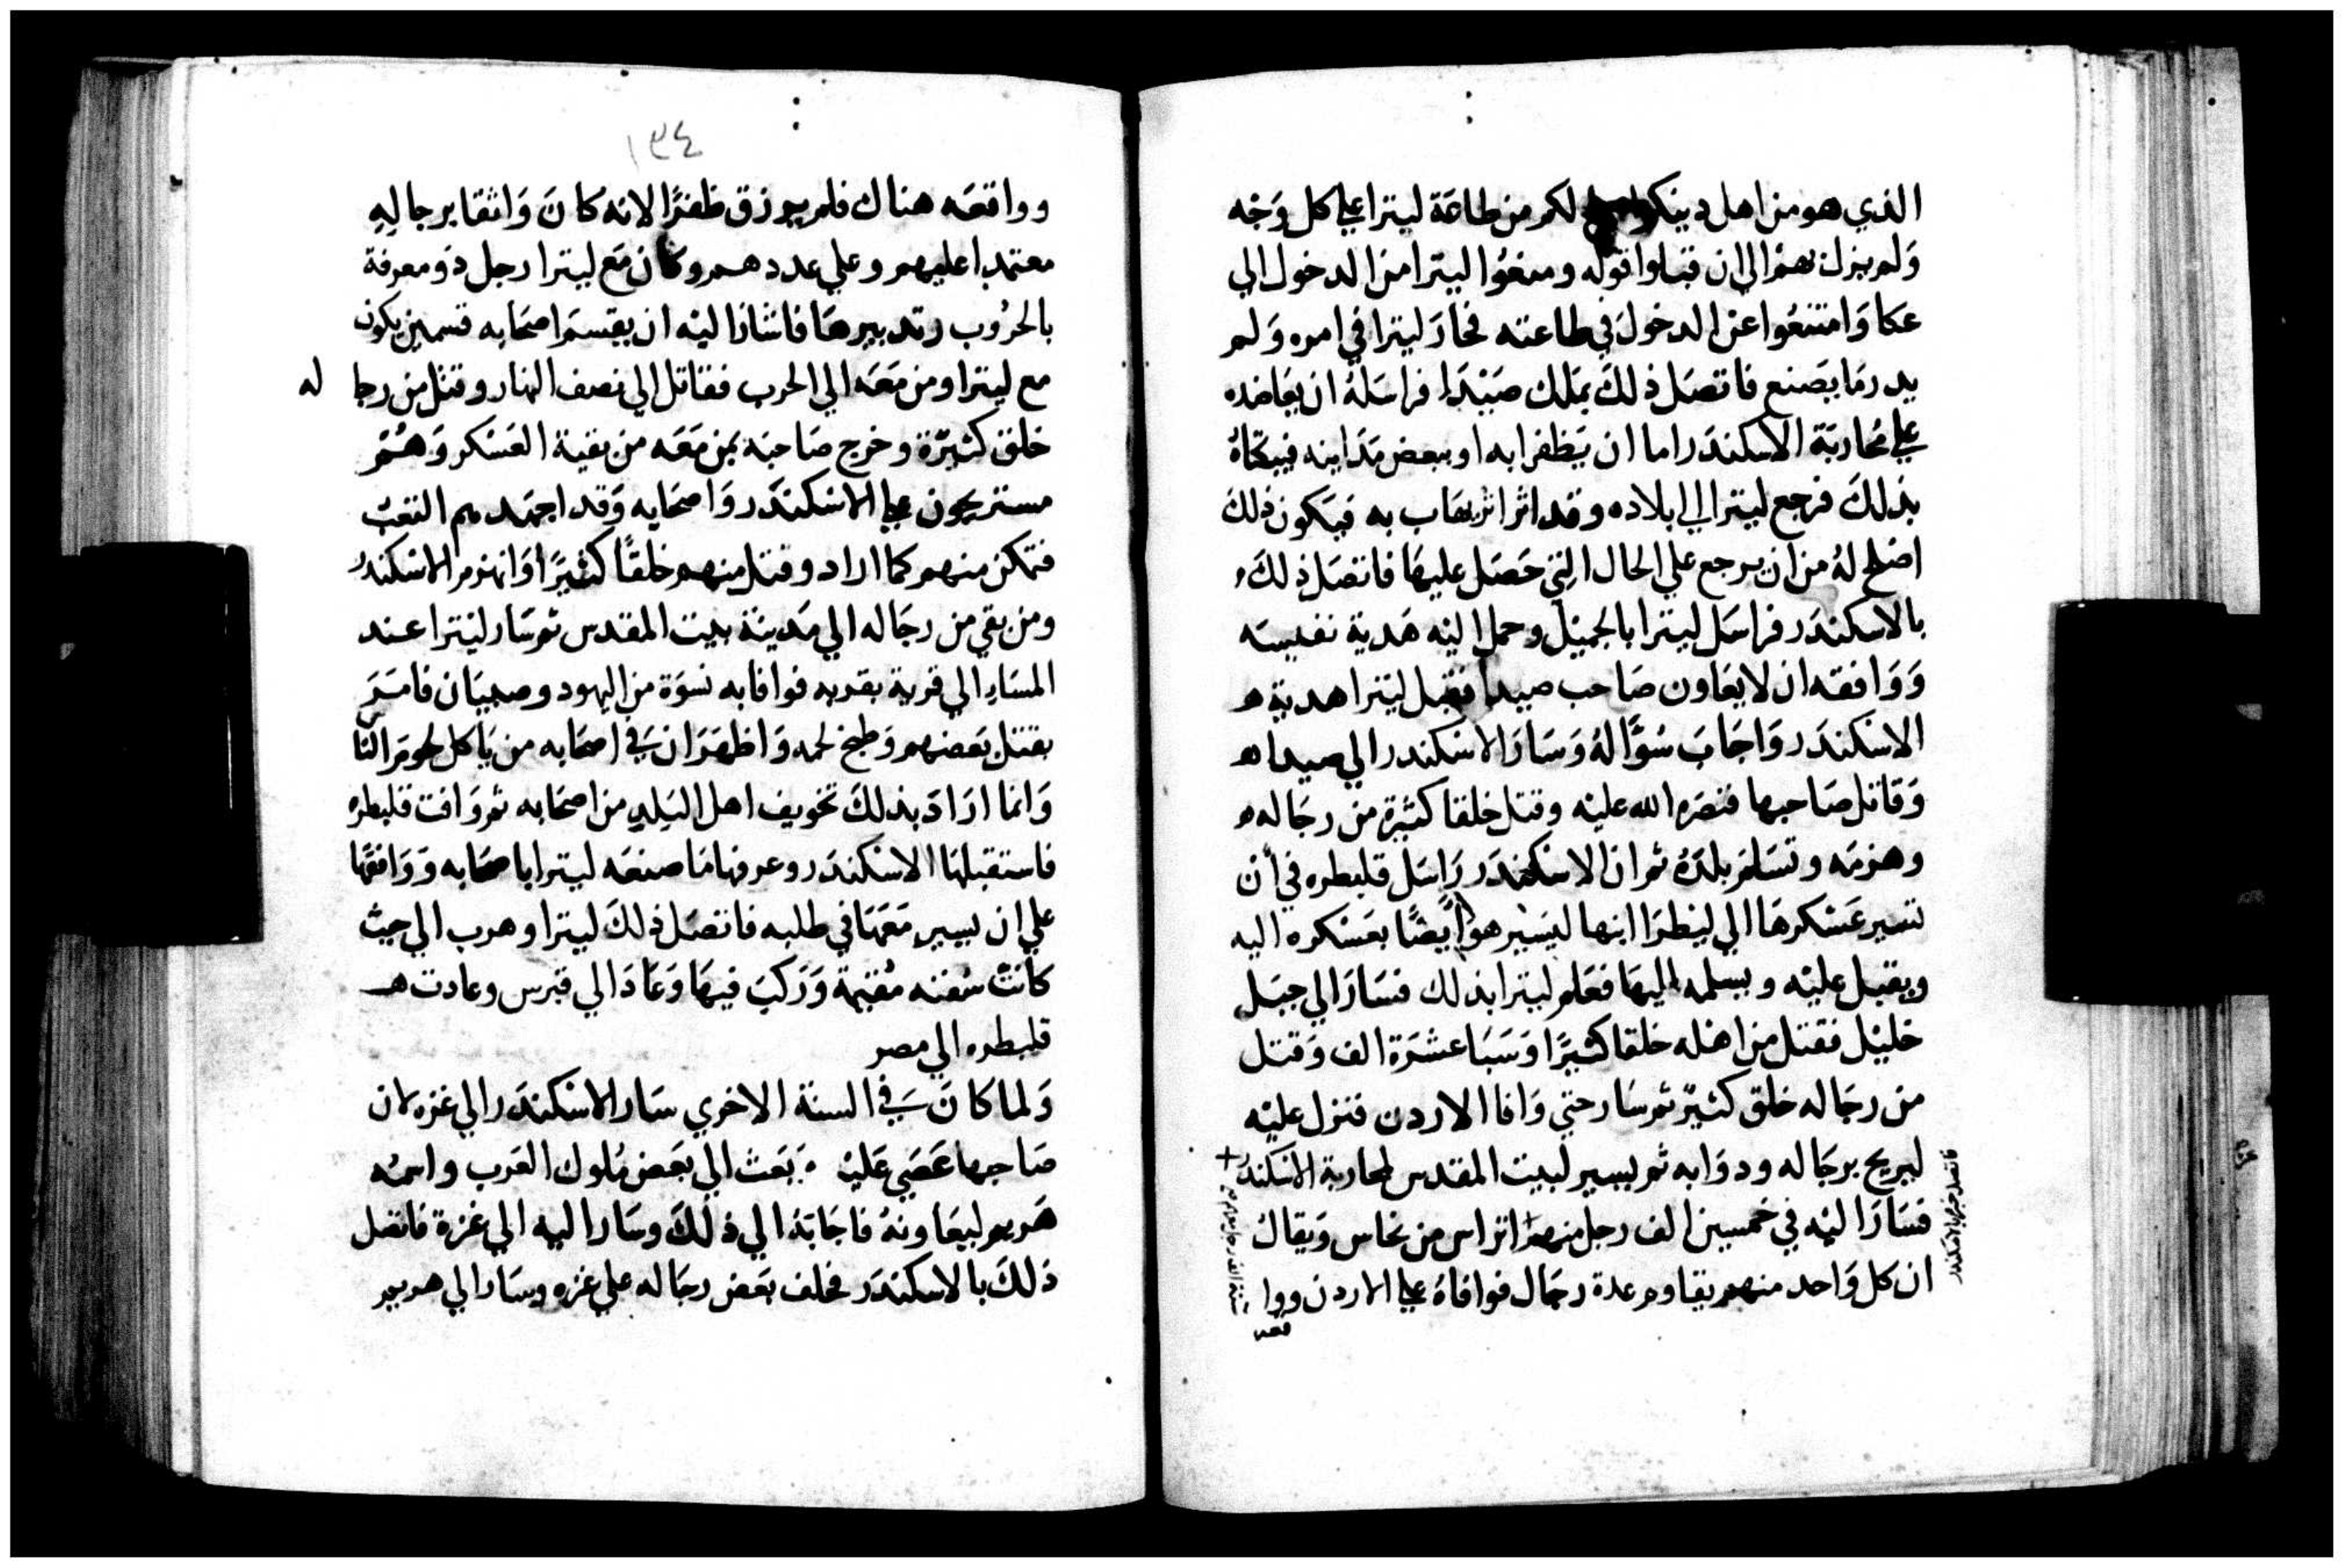 الذي هو من اهل دينكم لكم من طاعة ليترا علي كل وجه
ولم يزل بهم الي ان قبلوا قوله ومنعوا ليترا من الدخول الي
عكا وامتنعوا عن الدخول في طاعته فحار ليترا في امره ولم
يدر ما يصنع فاتصل ذلك بملك صيدا فراسله ان يعاضده
علي محاربة الاسكندر اما ان يظفرا به او ببعض مداينه
بذلك فرجع ليترا الي بلاده وقد اثر اثر يهاب به فيكون ذلك
اصلح له من ان يرجع علي الحال التي حصل عليها فاتصل ذلك
بالاسكندر فراسل ليترا بالجميل وحمل اليه هدية نفيسه
ووافقه ان لا يعاون صاحب صيدا فقبل ليترا هدية ه
الاسكندر واجاب سؤاله وسار الاسكندر الي صيدا ه
وقاتل صاحبها فنصره الله عليه وقتل خلقا كثيرة من رجاله ه
وهزمه وتسلم بلده ثم ان الاسكندر راسل قلبطره في ان
تسير عسكرها الي ليطرا ابنها ليسير هو ايضا بعسكره اليه
ويقبل عليه ويسلمه اليها فعلم ليترا بذلك فسار الي جبل
خليل فقتل من اهله خلقا كثيرا وسبا عشرة الف وقتل
من رجاله خلق كثير ثم سار حتي وافا الاردن فنزل عليه
ليريح رجاله ودوابه ثم يسير لبيت المقدس لمحاربة الاسكندر +
فاتصل خبره بالاسكندر
فسار اليه في خمسين الف رجل منهم اتراس من نحاس ويقال
ان كل واحد منهم يقاوم عدة رجال فوافاه علي الاردن ووا
قعه
١٣٤
وواقعه هناك فلم يرزق ظفرا لانه كان واثقا برجاله
معتمدا عليهم وعلي عددهم وكان مع ليترا رجل ذو معرفة
بالحروب وتدبيرها فاشار اليه ان يقسم اصحابه قسمين يكون
مع ليترا ومن معه الي الحرب فقاتل الي نصف النهار وقتل من رجا له
خلق كثيرة وخرج صاحبه بمن معه من بقية العسكر وهم
مستريحون علي الاسكندر واصحابه وقد اجهدهم التعب
فتمكن منهم كما اراد وقتل منهم خلقا كثيرا وانهزم الاسكندر
ومن بقي من رجاله الي مدينة بيت المقدس ثم سار ليترا عند
المساء الي قرية بقربه فوافا به نسوة من اليهود وصبيان فامر
بقتل بعضهم وطبخ لحمه واظهر ان في اصحابه من ياكل لحوم الناس
وانما اراد بذلك تخويف اهل البلد من اصحابه ثم وافت قلبطره
فاستقبلها الاسكندر وعرفها ما صنعه ليترا باصحابه ووافقها
علي ان يسير معها في طلبه فاتصل ذلك ليترا وهرب الي حيث
كانت سفنه مقيمة وركب فيها وعاد الي قبرس وعادت ه
قلبطره الي مصر
ولما كان في السنة الاخري سار الاسكندر الي غزه لان
صاحبها عصي عليه وبعث الي بعض ملوك العرب واسمه
هريم ليعاونه فاجابه الي ذلك وسار اليه الي غزة فاتصل
ذلك بالاسكندر فخلف بعض رجاله علي غزه وسار الي هريم